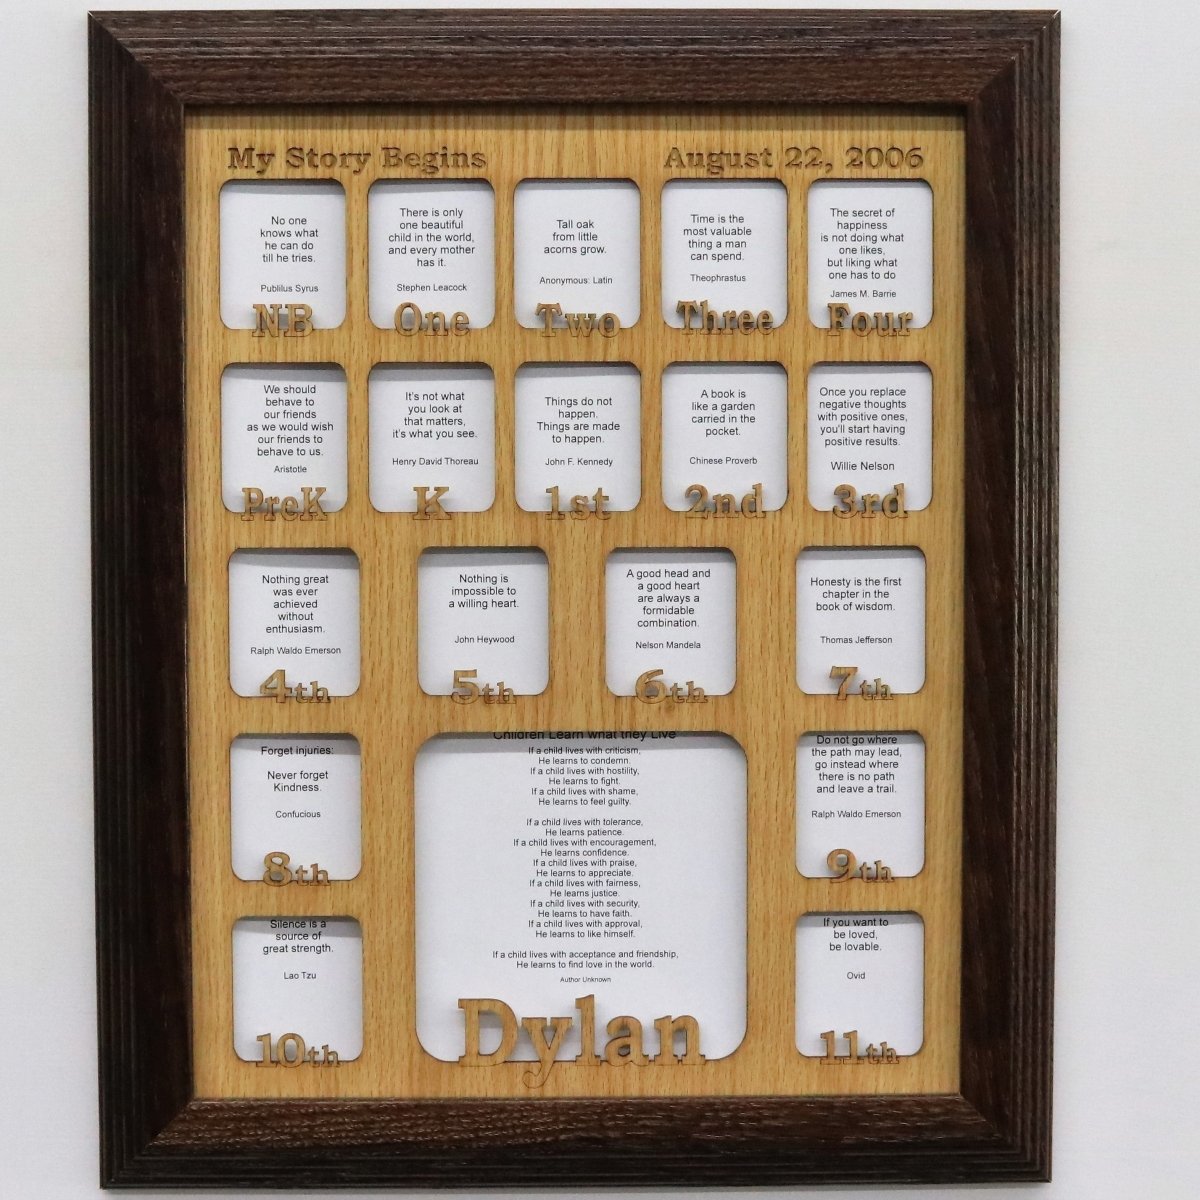 My Story Begins
August 22, 2006
No one
knows what
he can do
till he tries.
Publilus Syrus
NB
There is only
one beautiful
child in the world,
and every mother
has it.
Stephen Leacock
One
Tall oak
from little
acorns grow.
Anonymous: Latin
Two
Time is the
most valuable
thing a man
can spend.
Theophrastus
Three
The secret of
happiness
is not doing what
one likes,
but liking what
one has to do
James M. Barrie
Four
We should
behave to
our friends
as we would wish
our friends to
behave to us.
Aristotle
PreK
It's not what
you look at
that matters,
it's what you see.
Henry David Thoreau
K
Things do not
happen.
Things are made
to happen.
John F. Kennedy
1st
A book is
like a garden
carried in the
pocket.
Chinese Proverb
2nd
Once you replace
negative thoughts
with positive ones,
you'll start having
positive results.
Willie Nelson
3rd
Nothing great
was ever
achieved
without
enthusiasm.
Ralph Waldo Emerson
4th
Nothing is
impossible to
a willing heart.
John Heywood
5th
A good head and
a good heart
are always a
formidable
combination.
Nelson Mandela
6th
Honesty is the first
chapter in the
book of wisdom.
Thomas Jefferson
7th
Forget injuries:
Never forget
Kindness.
Confucious
8th
Children Learn what they Live
If a child lives with criticism,
He learns to condemn.
If a child lives with hostility,
He learns to fight.
If a child lives with shame,
He learns to feel guilty.
If a child lives with tolerance,
He learns patience.
If a child lives with encouragement,
He learns confidence.
If a child lives with praise,
He learns to appreciate.
If a child lives with fairness,
He learns justice.
If a child lives with security,
He learns to have faith.
If a child lives with approval,
He learns to like himself.
If a child lives with acceptance and friendship,
He learns to find love in the world.
Author Unknown
Dylan
Do not go where
the path may lead,
go instead where
there is no path
and leave a trail.
Ralph Waldo Emerson
9th
Silence is a
source of
great strength.
Lao Tzu
10th
If you want to
be loved,
be lovable.
Ovid
11th